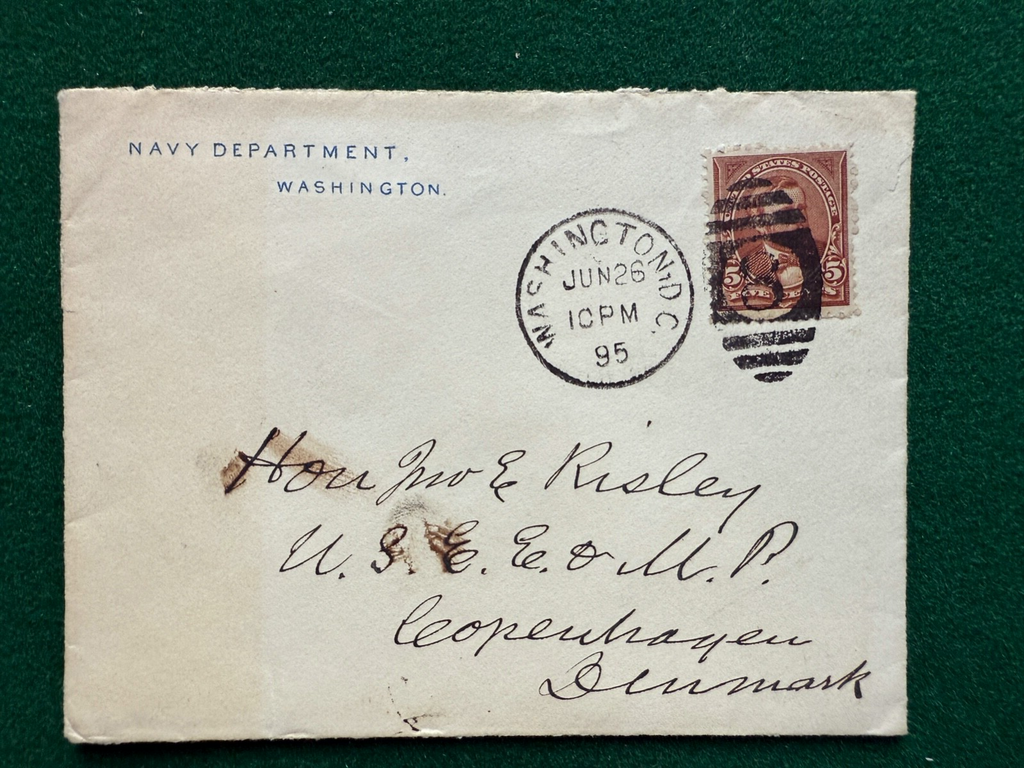 NAVY DEPARTMENT,
WASHINGTON.
UNITED STATES POSTAGE
5 5
WASHINGTON, D.C.
JUN 26
10 PM
95
8
Hon Jno E Risley
U. S. E. E. & M. P.
Copenhagen
Denmark